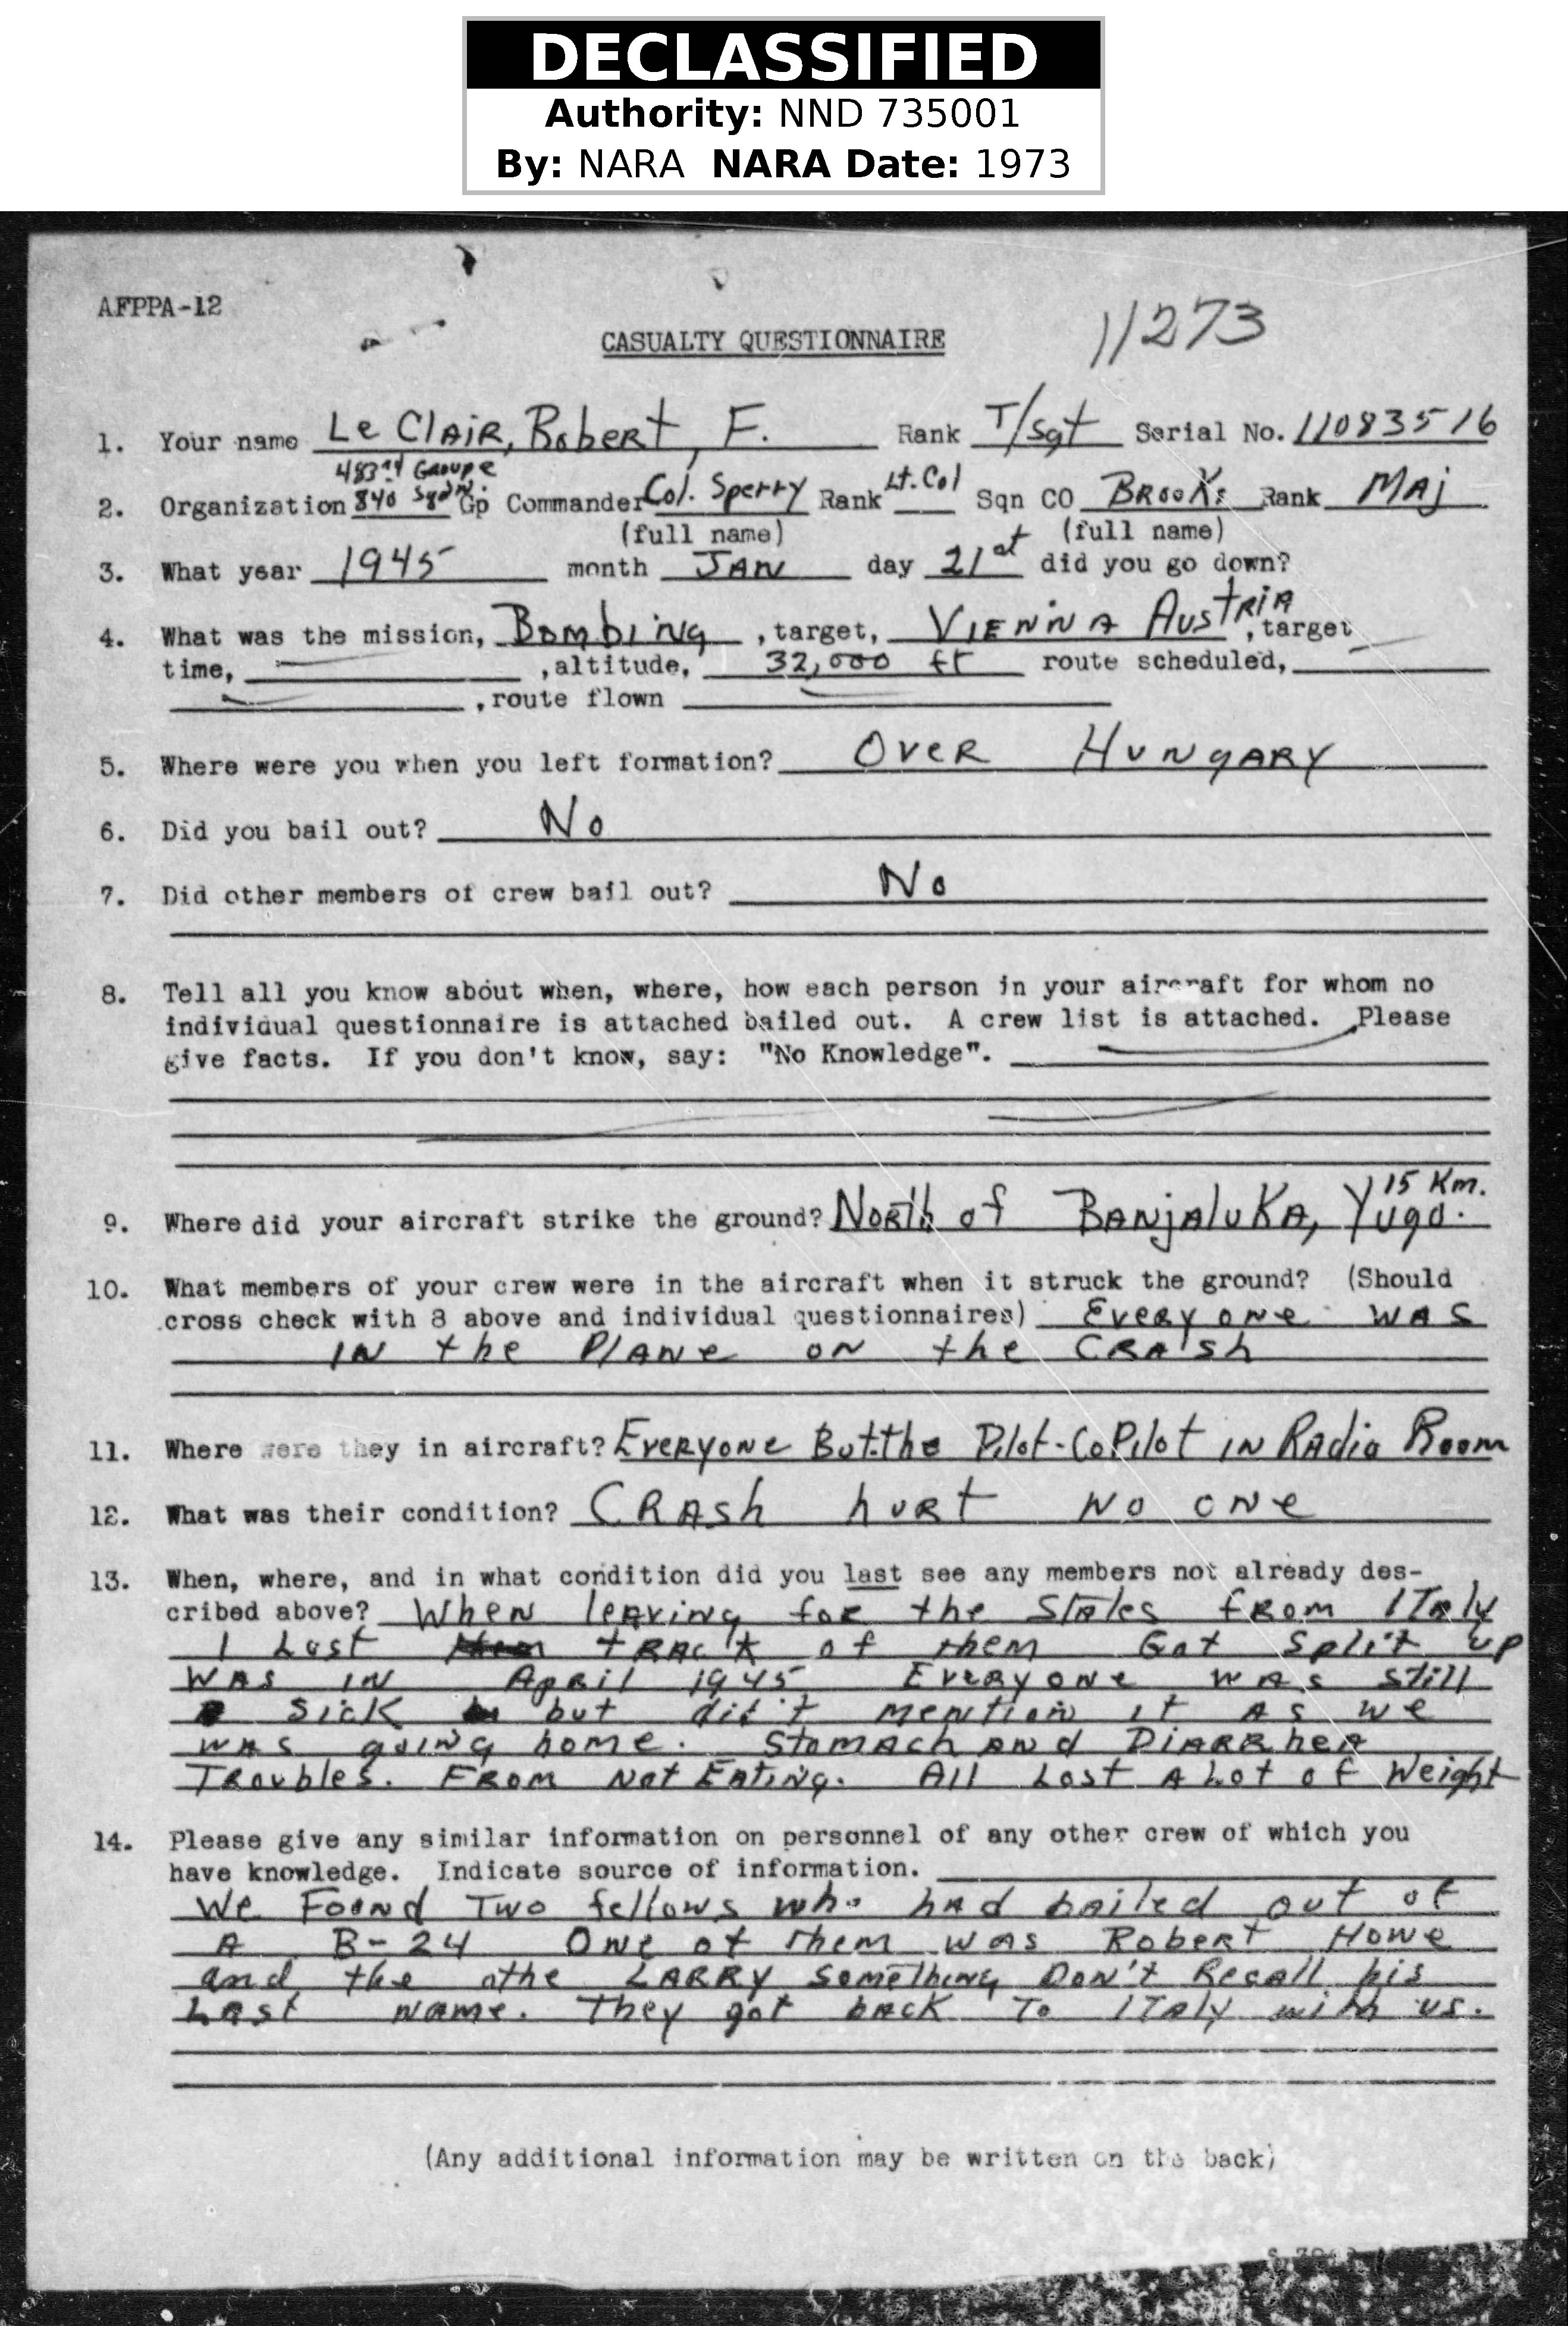 DECLASSIFIED
Authority: NND 735001
By: NARA NARA Date: 1973
AFPPA-12
CASUALTY QUESTIONNAIRE
11273
1. Your name Le Clair, Robert, F. Rank T/sgt Serial No. 11083516
483rd Groupe
2. Organization 840 Sqdn. Gp Commander Col. Sperry Rank Lt. Col Sqn CO Brooks Rank Maj
(full name) (full name)
3. What year 1945 month JAN day 21st did you go down?
4. What was the mission, Bombing, target, Vienna Austria, target
time, , altitude, 32,000 ft route scheduled,
, route flown
5. Where were you when you left formation? Over Hungary
6. Did you bail out? No
7. Did other members of crew bail out? No
8. Tell all you know about when, where, how each person in your aircraft for whom no
individual questionnaire is attached bailed out. A crew list is attached. Please
give facts. If you don't know, say: "No Knowledge".
15 Km.
9. Where did your aircraft strike the ground? North of Banjaluka, Yugo.
10. What members of your crew were in the aircraft when it struck the ground? (Should
cross check with 8 above and individual questionnaires) Everyone was
in the Plane on the Crash
11. Where were they in aircraft? Everyone But the Pilot-CoPilot in Radio Room
12. What was their condition? Crash hurt no one
13. When, where, and in what condition did you last see any members not already des-
cribed above? When leaving for the States from Italy
I Lost track of them Got split up
was in April 1945 Everyone was still
sick but did't mention it as we
was going home. Stomach and Diarrhea
Troubles. From Not Eating. All Lost A Lot of Weight
14. Please give any similar information on personnel of any other crew of which you
have knowledge. Indicate source of information.
We Found Two fellows who had bailed out of
A B-24 One of them was Robert Howe
and the othe Larry something Don't Recall his
Last name. They got back To Italy with us.
(Any additional information may be written on the back)